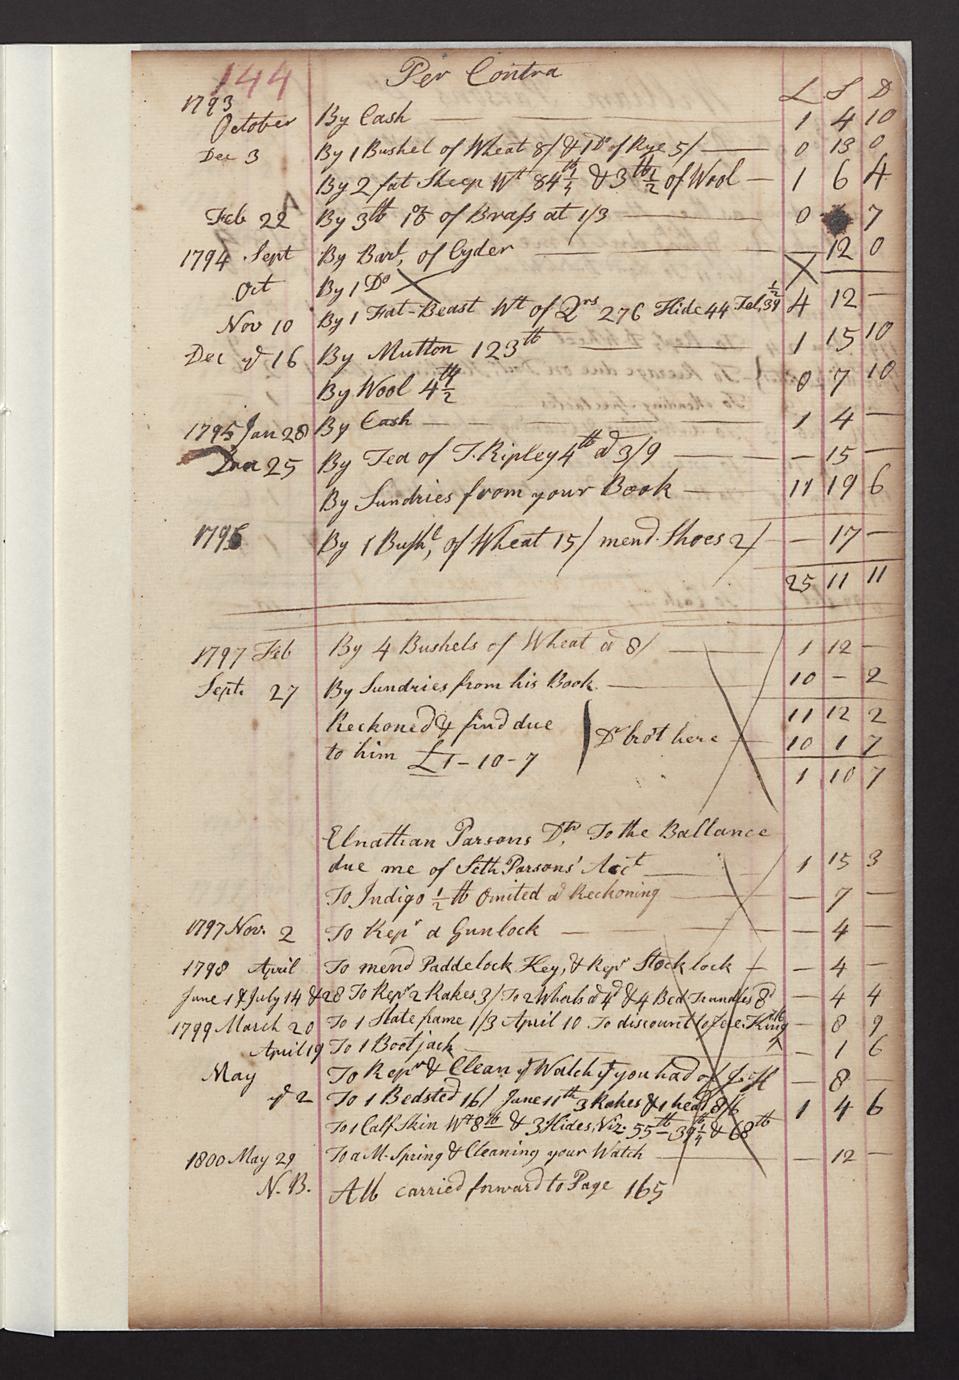 144 Per Contra
L S D
1793
October By Cash — 1 4 10
Dec 3 By 1 Bushel of Wheat 8/ & 1 Do of Rye 5/ — 0 13 0
By 2 fat Sheep Wt 84 1/2 & 3 lb 1/2 of Wool — 1 6 4
Feb 22 By 3 lb 1 oz of Brass at 1/3 — 0 7
1794 Sept By Barl, of Cyder — 12 0
Oct By 1 Do X
Nov 10 By 1 Fat-Beast Wt of Qrs 276 Hide 44 Tal, 39 1/2 4 12 —
Dec ye 16 By Mutton 123 lb — 1 15 10
By Wool 4 lb 1/2 0 7 10
1795 Jan 28 By Cash — 1 4 —
25 By Tea of T. Ripley 4 lb @ 3/9 — — 15 —
By Sundries from your Book — 11 19 6
1796 By 1 Bushl, of Wheat 15/ mend. Shoes 2/ — 17 —
25 11 11
1797 Feb By 4 Bushels of Wheat @ 8/ — 1 12 —
Sept. 27 By Sundries from his Book — 10 — 2
Reckoned & find due 11 12 2
to him £1-10-7 } Dr brot here — 10 1 7
1 10 7
Elnathan Parsons Dr, To the Ballance
due me of Seth Parsons' Acct — 1 15 3
To Indigo 1/2 lb Omited @ Reckoning — 7 —
1797 Nov. 2 To Repr a Gun lock — — 4 —
1798 April To mend Paddelock Key, & Repr Stock lock — — 4 —
June 1 & July 14 & 28 To Repr 2 Rakes 3/ To 2 Whorls @ 4d & 4 Bed Trundles 8d — 4 4
1799 March 20 To 1 Slate frame 1/3 April 10 To discount King — 8 9
April 19 To 1 Bootjack — — 1 6
May To Repr & Clean ye Watch yt you had of — 8 —
ye 2 To 1 Bedsted 16/ June 11th 3 Rakes & 1 head 8/6 1 4 6
To 1 Calf Skin Wt 8 lb & 3 Hides, Viz. 55 lb — 39 1/4 & 68 lb
1800 May 29 To a M. Spring & Cleaning your Watch — — 12 —
N. B. All carried forward to Page 165